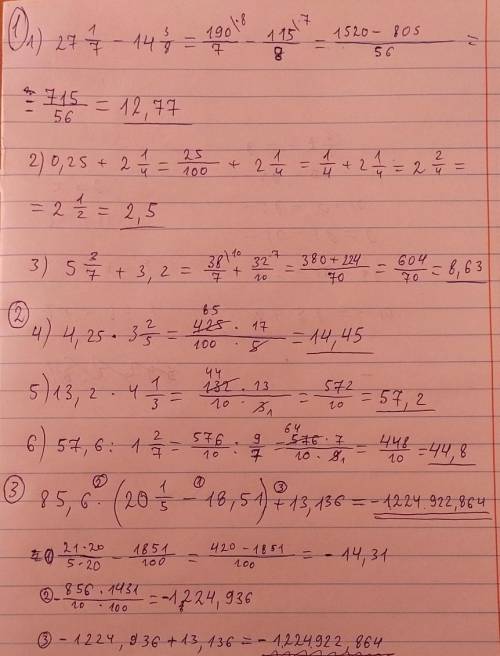 ① 1) 27 1/7 − 14 3/8 = 190\·8/7 − 115\·7/8 = 1520 − 805/56 =
= 715/56 = 12,77
2) 0,25 + 2 1/4 = 25/100 + 2 1/4 = 1/4 + 2 1/4 = 2 2/4 =
= 2 1/2 = 2,5
3) 5 3/7 + 3,2 = 38\10/7 + 32·7/10 = 380 + 224/70 = 604/70 = 8,63
②
4) 4,25 · 3 2/5 = 85 425 · 17/100 · 5 = 14,45
5) 13,2 · 4 1/3 = 44 132 · 13/10 · 3 1 = 572/10 = 57,2
6) 57,6 : 1 2/7 = 576/10 : 9/7 = 64 576 · 7/10 · 9 1 = 448/10 = 44,8
③ 85,6 ·② (20 1/5 −① 18,51) +③ 13,136 = −1224.922,864
① 21·20/5·20 − 1851/100 = 420 − 1851/100 = − 14,31
② − 856 · 1431/10 · 100 = −1224,936
③ − 1224,936 + 13,136 = − 1224922,864